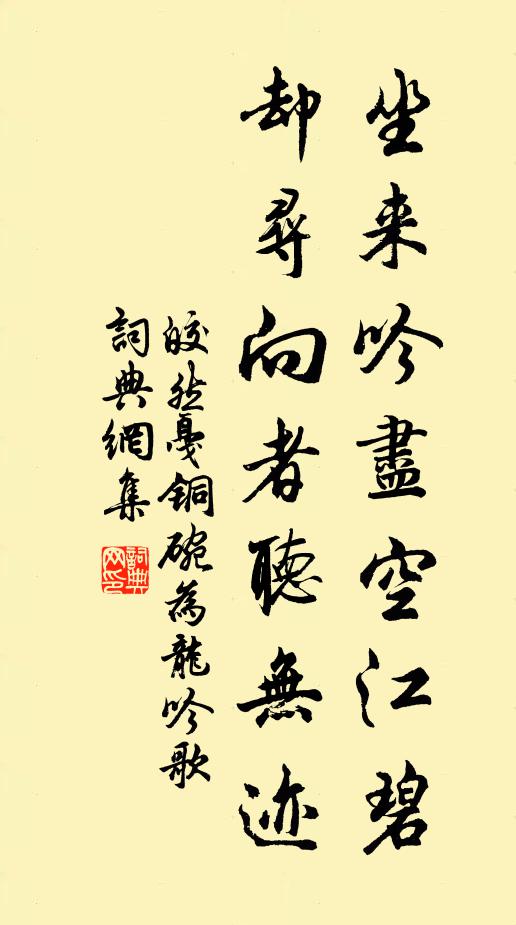 坐来吟盡空江碧
却尋向者聽無迹
皎然戛銅碗為龍吟歌
詞典網集
詞典網印